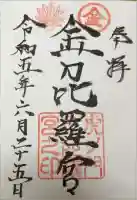 奉拝
金
金刀比羅宮
虎ノ門
令和五年六月二十五日